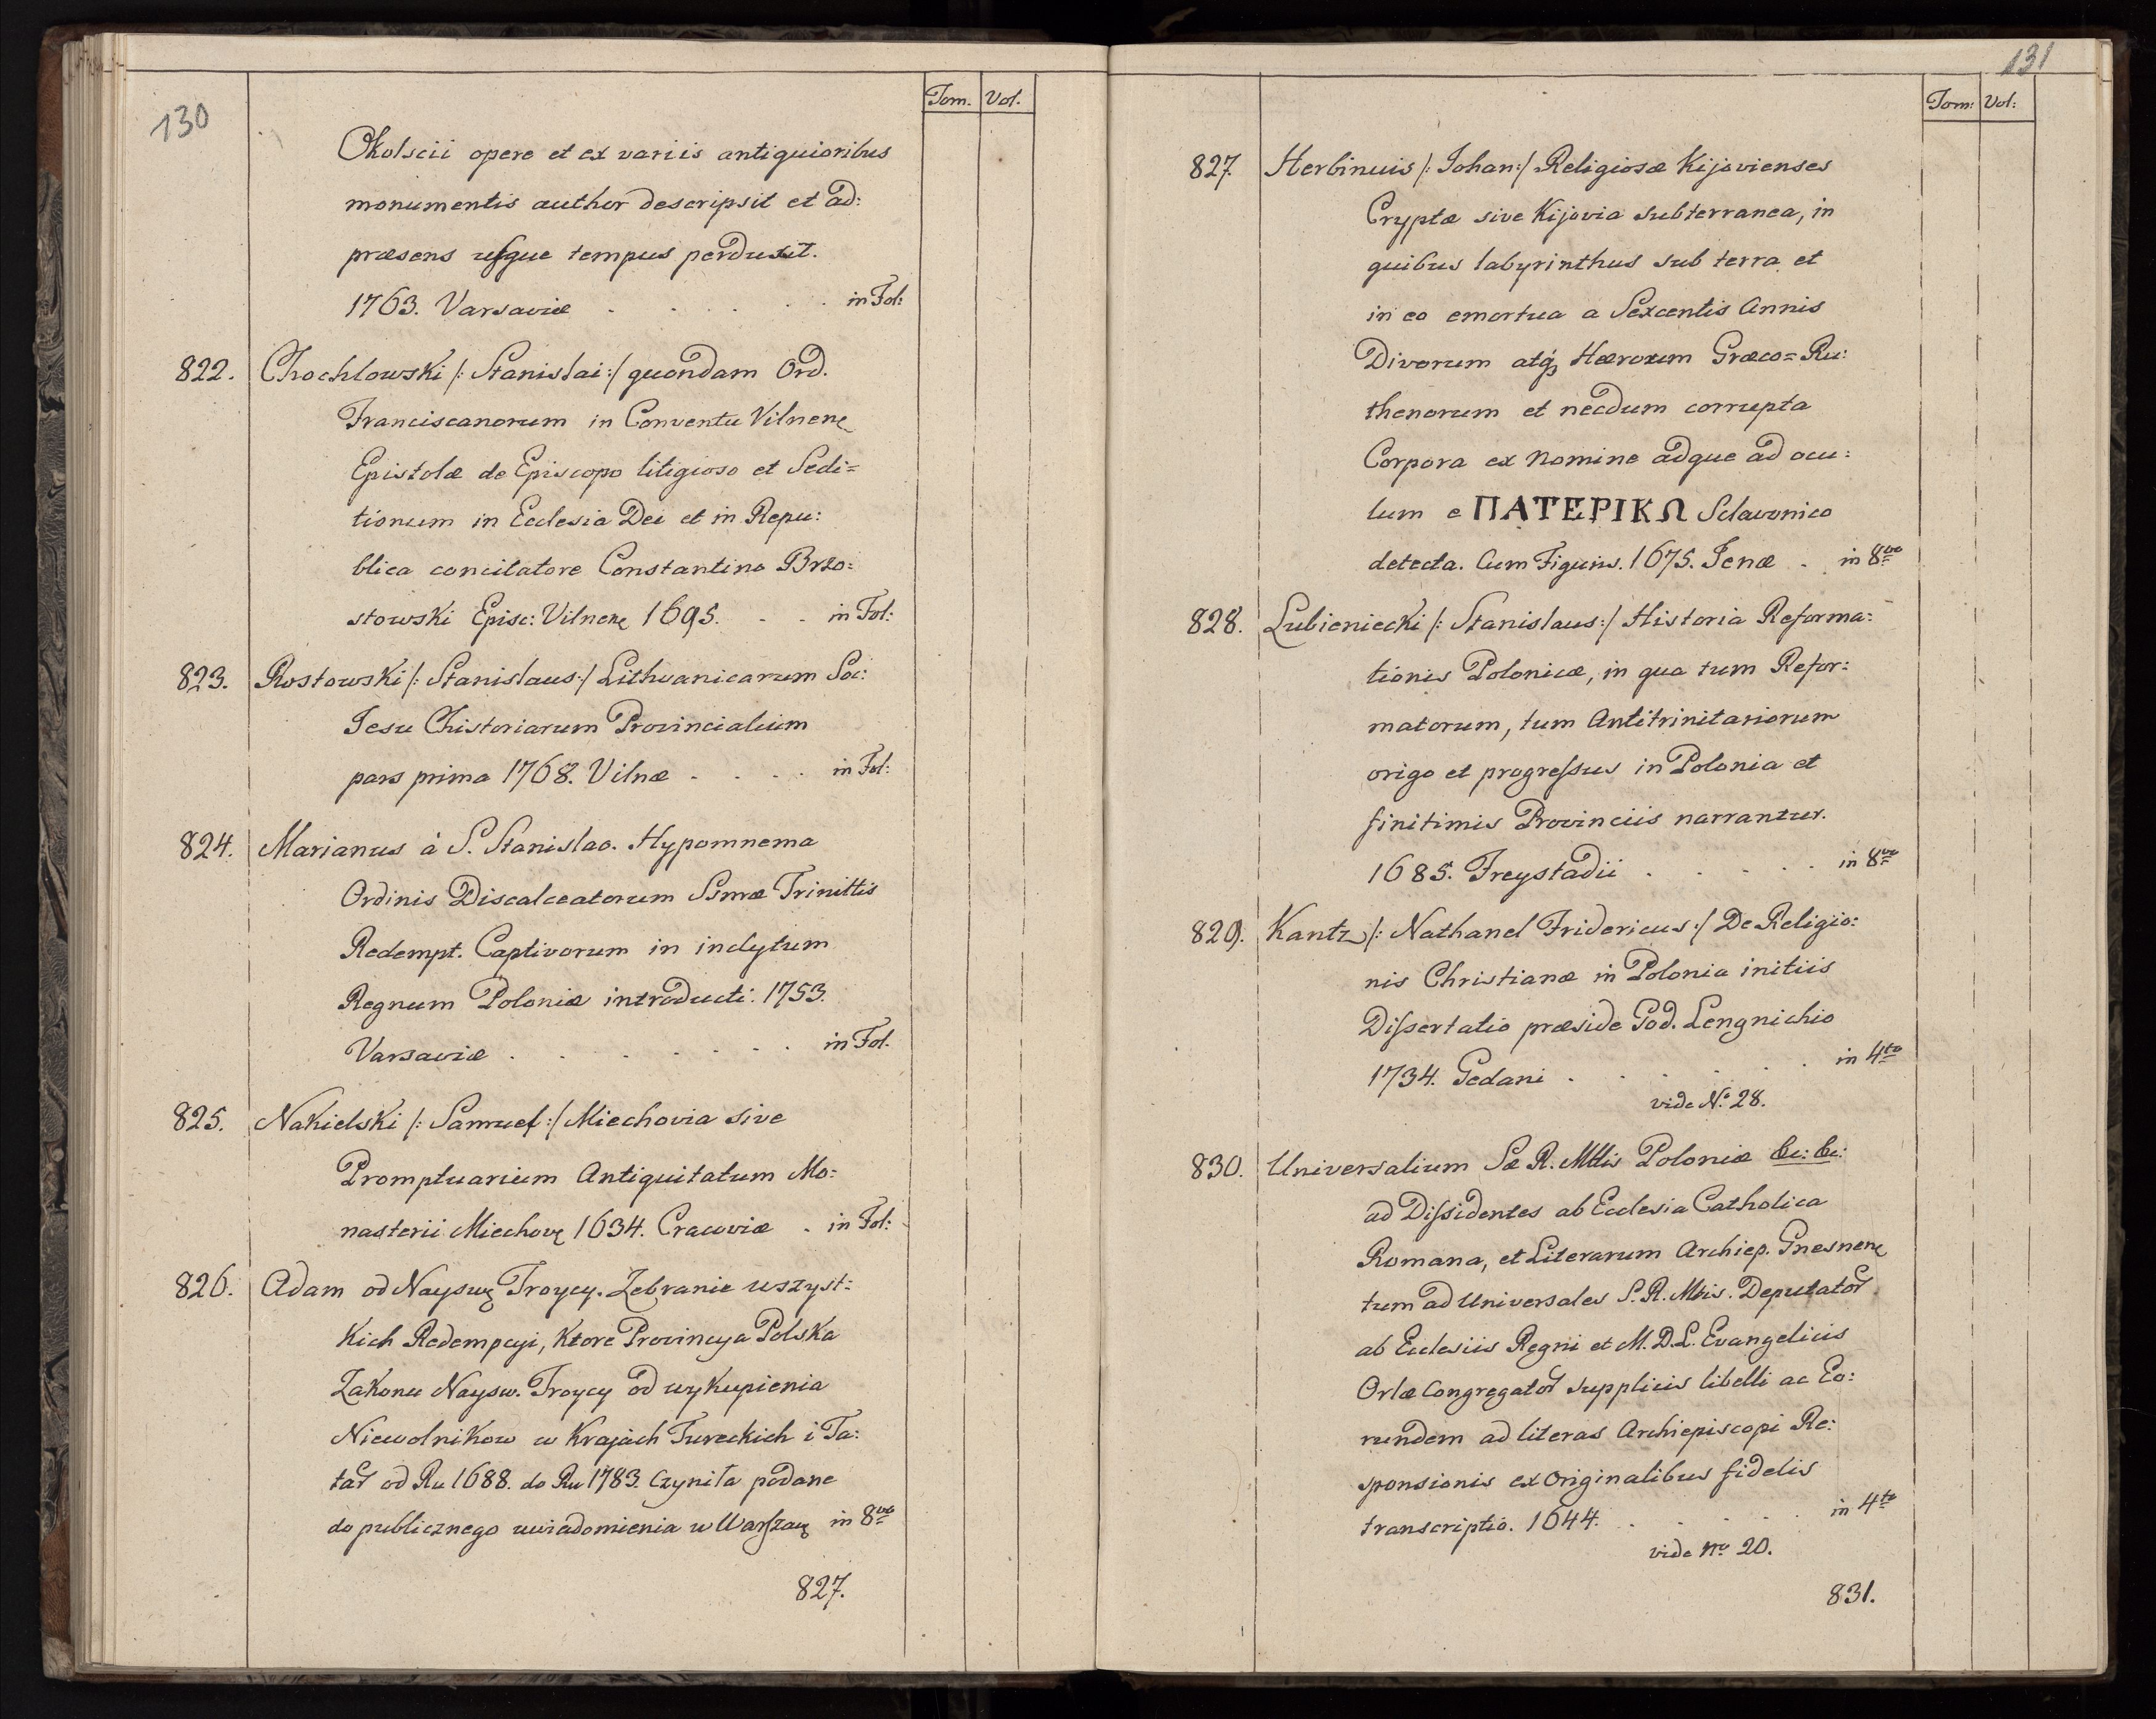 130
Tom. Vol.
Okolscii opere et ex variis antiquioribus
monumentis author descripsit et ad:
præsens usque tempus perduxit.
1763. Varsaviæ . . . . . in Fol:
822. Chochlowski /: Stanislai :/ quondam Ord.
Franciscanorum in Conventu Vilnen
Epistolæ de Episcopo litigioso et Sedi=
tionum in Ecclesia Dei et in Repu:
blica concitatore Constantino Brzo:
stowski Episc: Vilnen 1695. . . in Fol:
823. Rostowski /: Stanislaus :/ Lithvanicarum Soc:
Jesu Chistoriarum Provincialium
pars prima 1768. Vilnæ . . . . in Fol:
824. Marianus à S. Stanislao. Hypomnema
Ordinis Discalceatorum Ssmæ Trinittis
Redempt. Captivorum in inclytum
Regnum Poloniæ introducti. 1753.
Varsaviæ . . . . . . . in Fol.
825. Nakielski /: Samuel :/ Miechovia sive
Promptuarium Antiquitatum Mo:
nasterii Miechov 1634. Cracoviæ . in Fol:
826. Adam od Naysw Troycy. Zebranie wszyst:
kich Redempcyi, ktore Provincya Polska
Zakonu Naysw. Troycy od wykupienia
Niewolnikow w Krajach Tureckich i Ta:
tar od Ru 1688. do Ru 1783. czyniła podane
do publicznego uwiadomienia w Warszaw in 8vo
827.
131
Tom: Vol:
827. Herbinuis /: Johan :/ Religiosæ Kijovienses
Cryptæ sive Kijovia subterranea, in
quibus labyrinthus sub terra et
in eo emortua a Sexcentis Annis
Divorum atq Hæroxum Græco=Ru:
thenorum et necdum corrupta
Corpora ex Nomine adque ad ocu:
lum e ΠΑΤΕΡΙΚΩ Sclavonico
detecta. Cum Figuris. 1675. Jenæ . in 8vo
828. Lubieniecki /: Stanislaus :/ Historia Reforma:
tionis Polonicæ, in qua tum Refor:
matorum, tum Antitrinitariorum
origo et progressus in Polonia et
finitimis Provinciis narrantur.
1685. Freystadii . . . . . in 8vo
829. Kantz /: Nathanel Fridericus :/ De Religio:
nis Christianæ in Polonia initiis
Dissertatio præside God. Lengnichio
1734. Gedani . . . . . in 4to
vide No 28.
830. Universalium Sæ R. Mttis Poloniæ &c: &c:
ad Dissidentes ab Ecclesia Catholica
Romana, et Literarum Archiep. Gnesnen
tum ad Universales S. R. Mtis. Deputator
ab Ecclesiis Regni et M. D. L. Evangelicis
Orlæ Congregator supplicis libelli ac Eo:
rundem ad literas Archiepiscopi Re:
sponsionis ex Originalibus fidelis
transcriptio. 1644. . . . . . in 4to
vide No 20.
831.